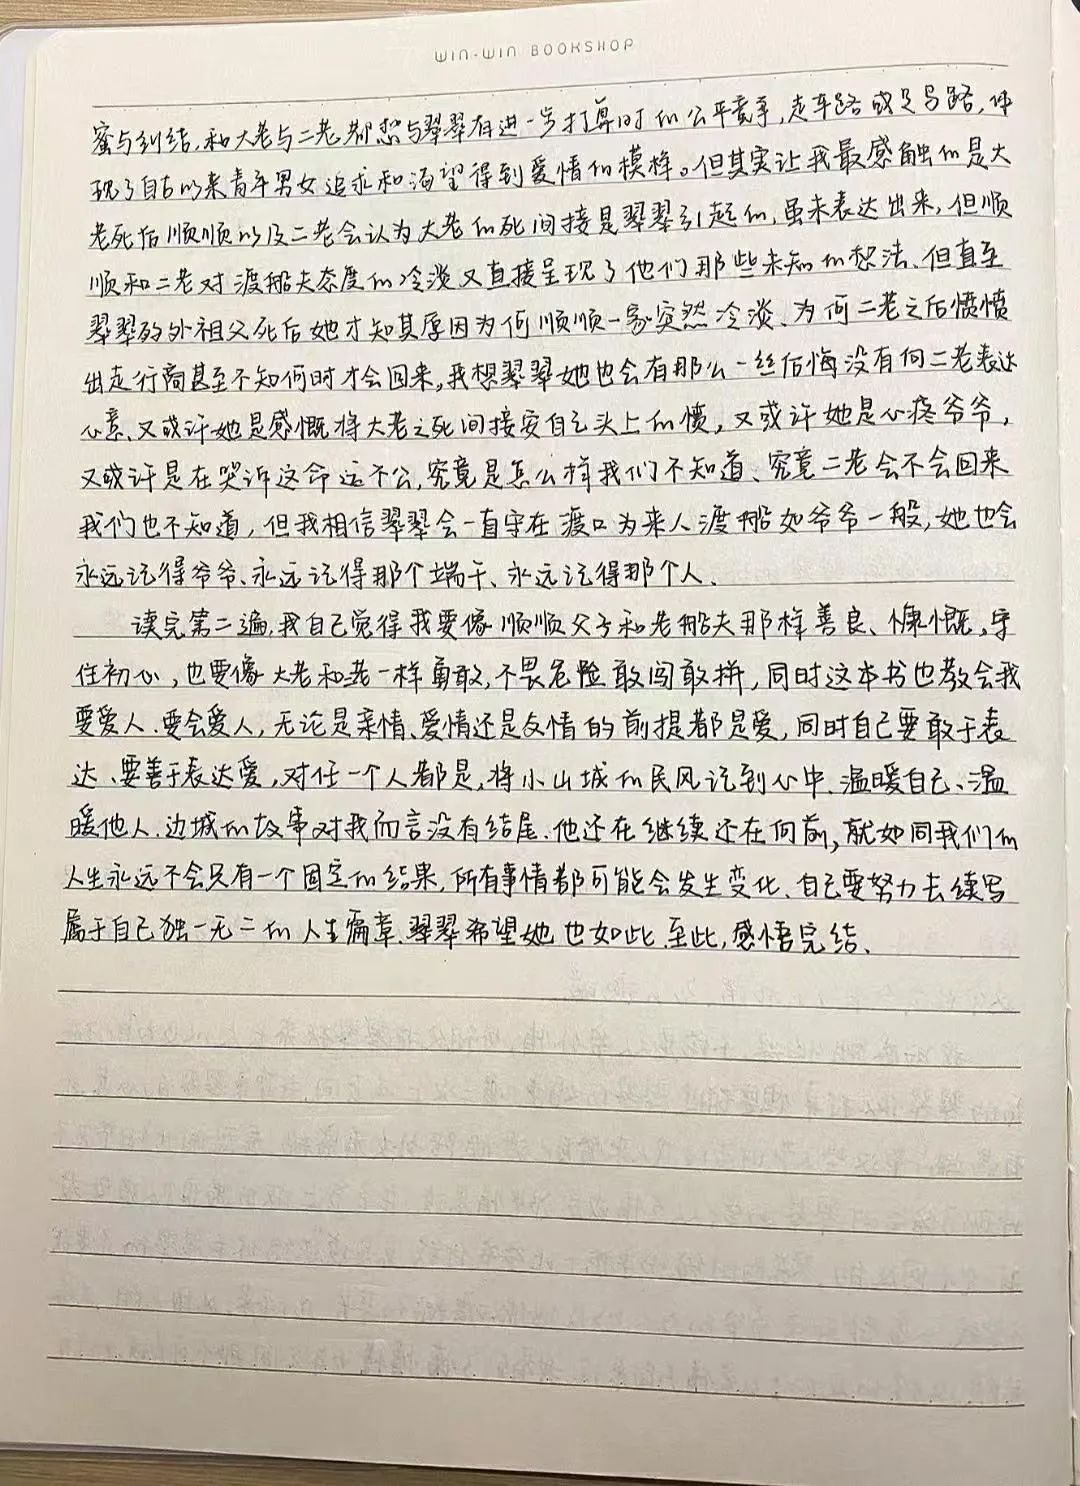 WIN-WIN BOOKSHOP
蜜与纠结,和大老与二老都想与翠翠有进一步打算时的公平竞争,走车路或是马路,体
现了自古以来青年男女追求和渴望得到爱情的模样。但其实让我最感触的是大
老死后顺顺以及二老会认为大老的死间接是翠翠引起的,虽未表达出来,但顺
顺和二老对渡船夫态度的冷淡又直接呈现了他们那些未知的想法、但直至
翠翠的外祖父死后她才知其原因为何顺顺一家突然冷淡、为何二老之后愤愤
出走行商甚至不知何时才会回来,我想翠翠她也会有那么一丝后悔没有向二老表达
心意、又或许她是感慨将大老之死间接安自己头上的愤,又或许她是心疼爷爷,
又或许是在哭诉这命运不公,究竟是怎么样我们不知道、究竟二老会不会回来
我们也不知道,但我相信翠翠会一直守在渡口为来人渡船如爷爷一般,她也会
永远记得爷爷、永远记得那个端午、永远记得那个人.
读完第二遍,我自己觉得我要像顺顺父子和老船夫那样善良、慷慨,守
住初心,也要像大老和二老一样勇敢,不畏危险敢闯敢拼,同时这本书也教会我
要爱人.要会爱人,无论是亲情、爱情还是友情的前提都是爱,同时自己要敢于表
达、要善于表达爱,对任一个人都是,将小山城的民风记到心中.温暖自己、温
暖他人.边城的故事对我而言没有结尾.他还在继续还在向前,就如同我们的
人生永远不会只有一个固定的结果,所有事情都可能会发生变化、自己要努力去续写
属于自己独一无二的人生篇章.翠翠希望她也如此.至此,感悟完结、